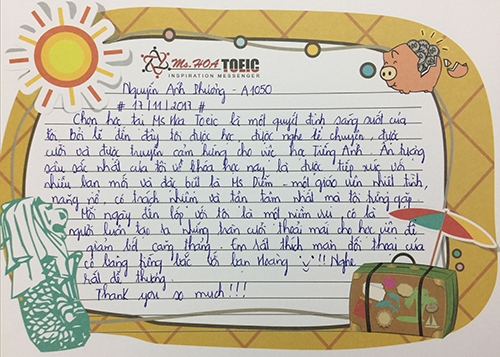 Ms.HOA TOEIC
INSPIRATION MESSENGER
Nguyễn Anh Phương - A1050
# 17/11/2017 #
Chọn học tại Ms Hoa Toeic là một quyết định sáng suốt của
tôi bởi lẽ đến đây tôi được học, được nghe kể chuyện, được
cười và được truyền cảm hứng cho việc học Tiếng Anh. Ấn tượng
sâu sắc nhất của tôi về khóa học này là được tiếp xúc với
nhiều bạn mới và đặc biệt là Ms Diễm - một giáo viên nhiệt tình,
năng nổ, có trách nhiệm và tận tâm nhất mà tôi từng gặp.
Mỗi ngày đến lớp với tôi là một niềm vui, cô là
người luôn tạo ra những tràn cười thoải mái cho học viên để
giảm bớt căng thẳng. Em rất thích màn đối thoại của
cô bằng tiếng bắc với bạn Hoàng !! Nghe
rất dễ thương.
Thank you so much!!!